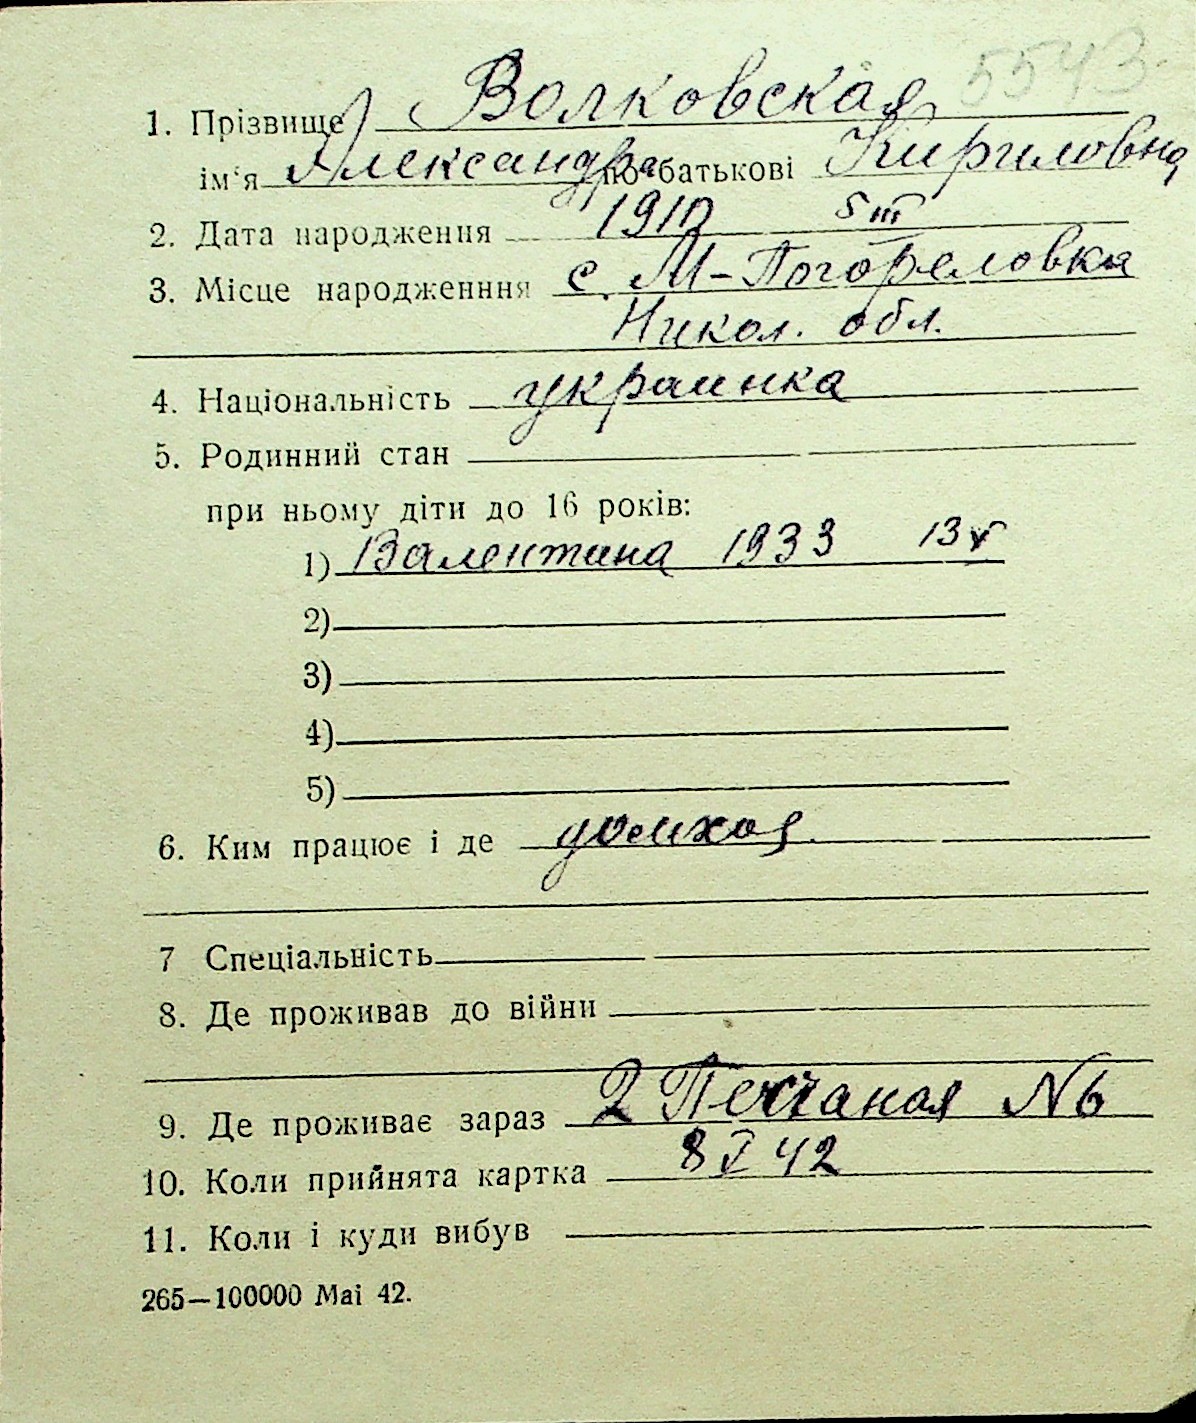 5543
1. Прізвище Волковская
ім‘я Александра по-батькові Кириловна
2. Дата народження 1910 5 III
3. Місце народженння с. М-Погореловка
Никол. обл.
4. Національність украинка
5. Родинний стан
при ньому діти до 16 років:
1) Валентина 1933 13 V
2)
3)
4)
5)
6. Ким працює і де домхоз
7 Спеціальність
8. Де проживав до війни
9. Де проживає зараз 2 Песчаная № 6
10. Коли прийнята картка 8 X 42
11. Коли і куди вибув
265—100000 Mai 42.